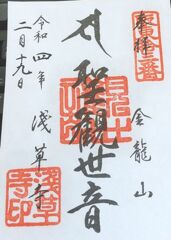 奉拝
金龍山
聖観世音
浅草寺
令和四年
二月十九日
浅草
寺印